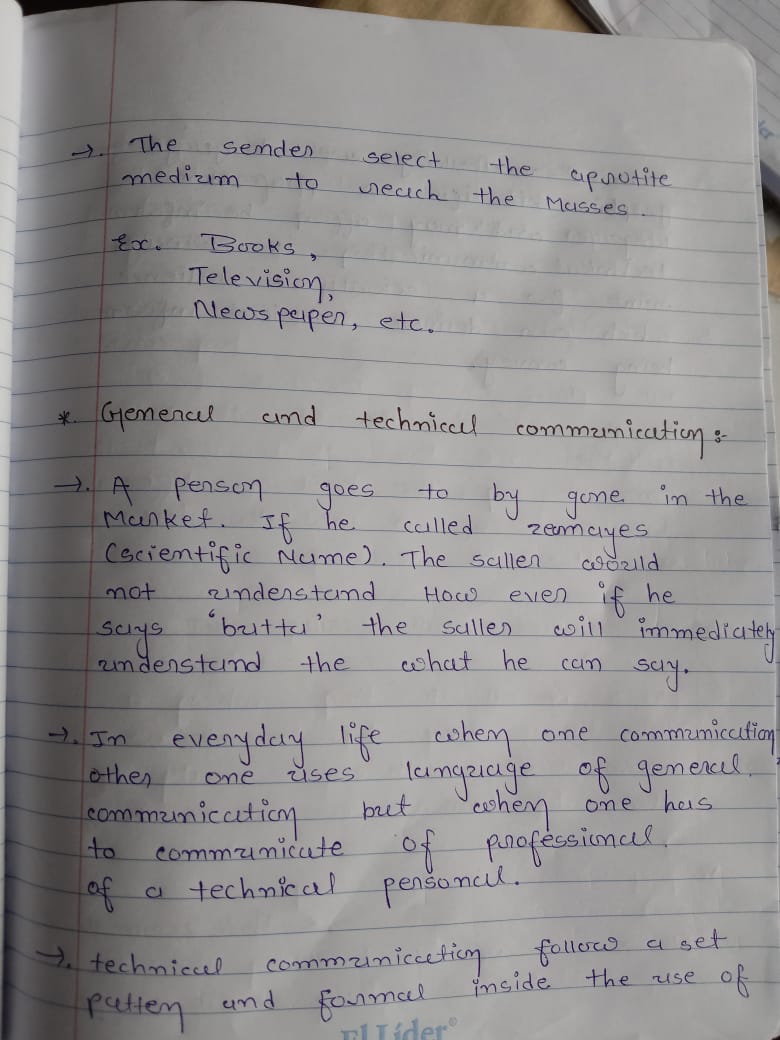 →. The sender select the aprotite
medium to reach the Masses.
Ex. Books,
Television,
News paper, etc.
*. General and technical communication :-
→. A person goes to by gone in the
Market. If he called zeamayes
(scientific Name). The saller would
not understand How ever if he
says 'butta' the saller will immediately
understand the what he can say.
→. In everyday life when one communication
other one uses language of general
communication but when one has
to communicate of professional.
of a technical personal.
→. technical communication follow a set
patten and formal inside the use of
El Líder®